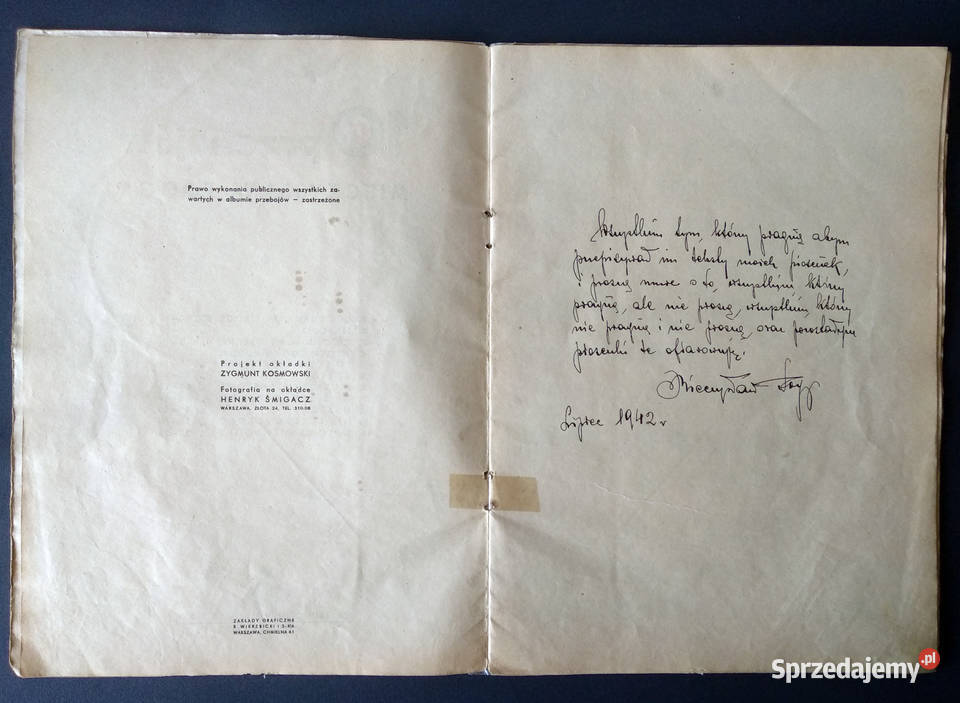 Prawo wykonania publicznego wszystkich za-
wartych w albumie przebojów — zastrzeżone
Projekt okładki
ZYGMUNT KOSMOWSKI
Fotografia na okładce
HENRYK ŚMIGACZ
WARSZAWA, ZŁOTA 24, TEL. 310-08
ZAKŁADY GRAFICZNE
B. WIERZBICKI I S-KA
WARSZAWA, CHMIELNA 61
Wszystkim tym, którzy pragną abym
przepisywał im teksty moich piosenek,
i proszą mnie o to, wszystkim którzy
pragną, ale nie proszą, wszystkim którzy
nie pragną i nie proszą, oraz pozostałym
piosenki te ofiarowuję.
Mieczysław Fogg
Lipiec 1942 r
Sprzedajemy.pl